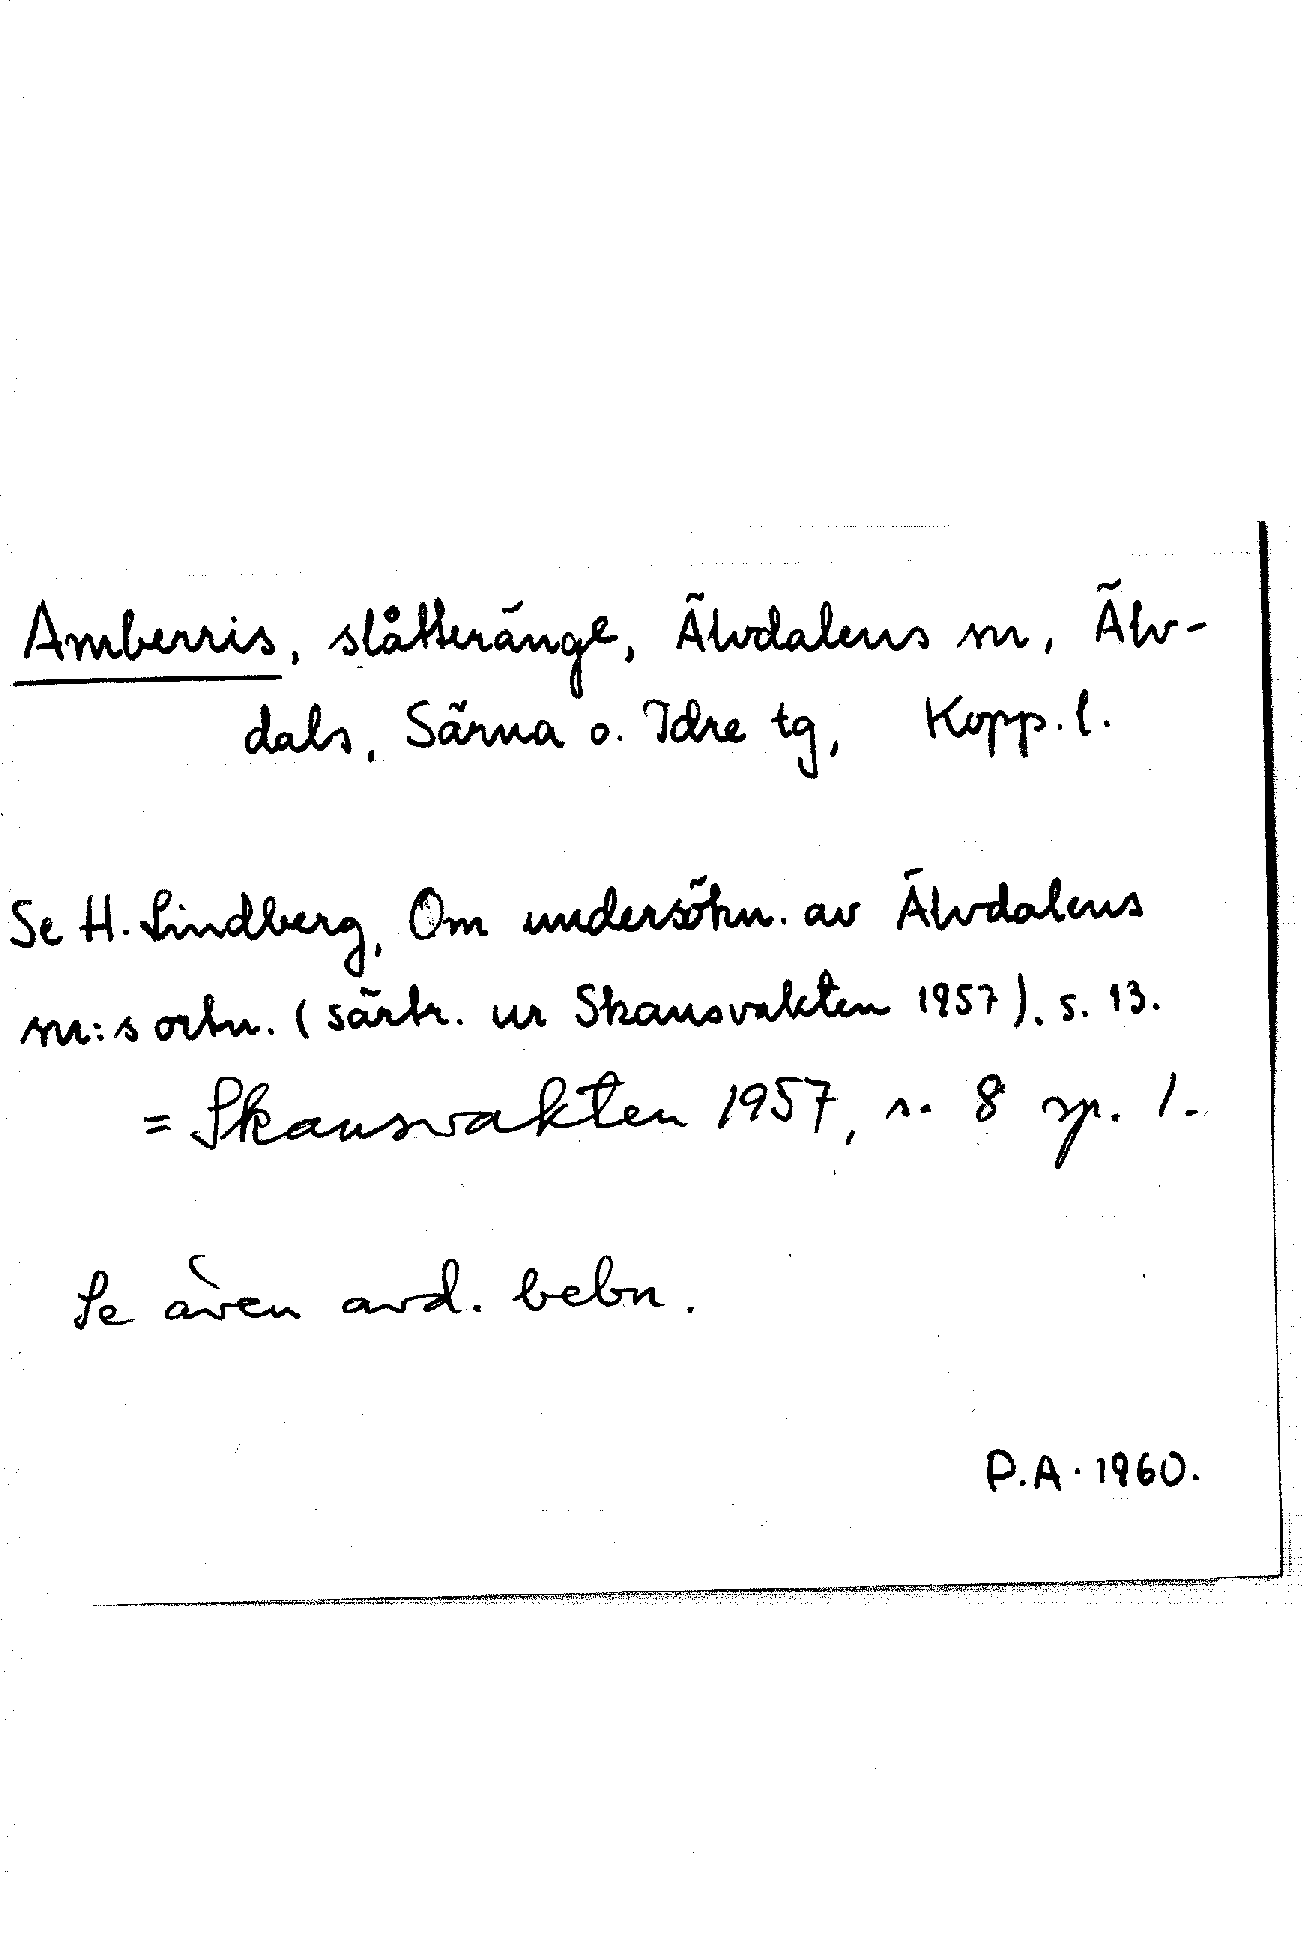 Amberris, slåtteränge, Älvdalens sn, Älv-
dals, Särna o. Idre tg, Kopp. l.
Se H. Lindberg, Om undersökn. av Älvdalens
sn:s ortn. (särtr. ur Skansvakten 1957), s. 13.
= Skansvakten 1957, s. 8 sp. 1.
Se även avd. bebn.
P.A. 1960.